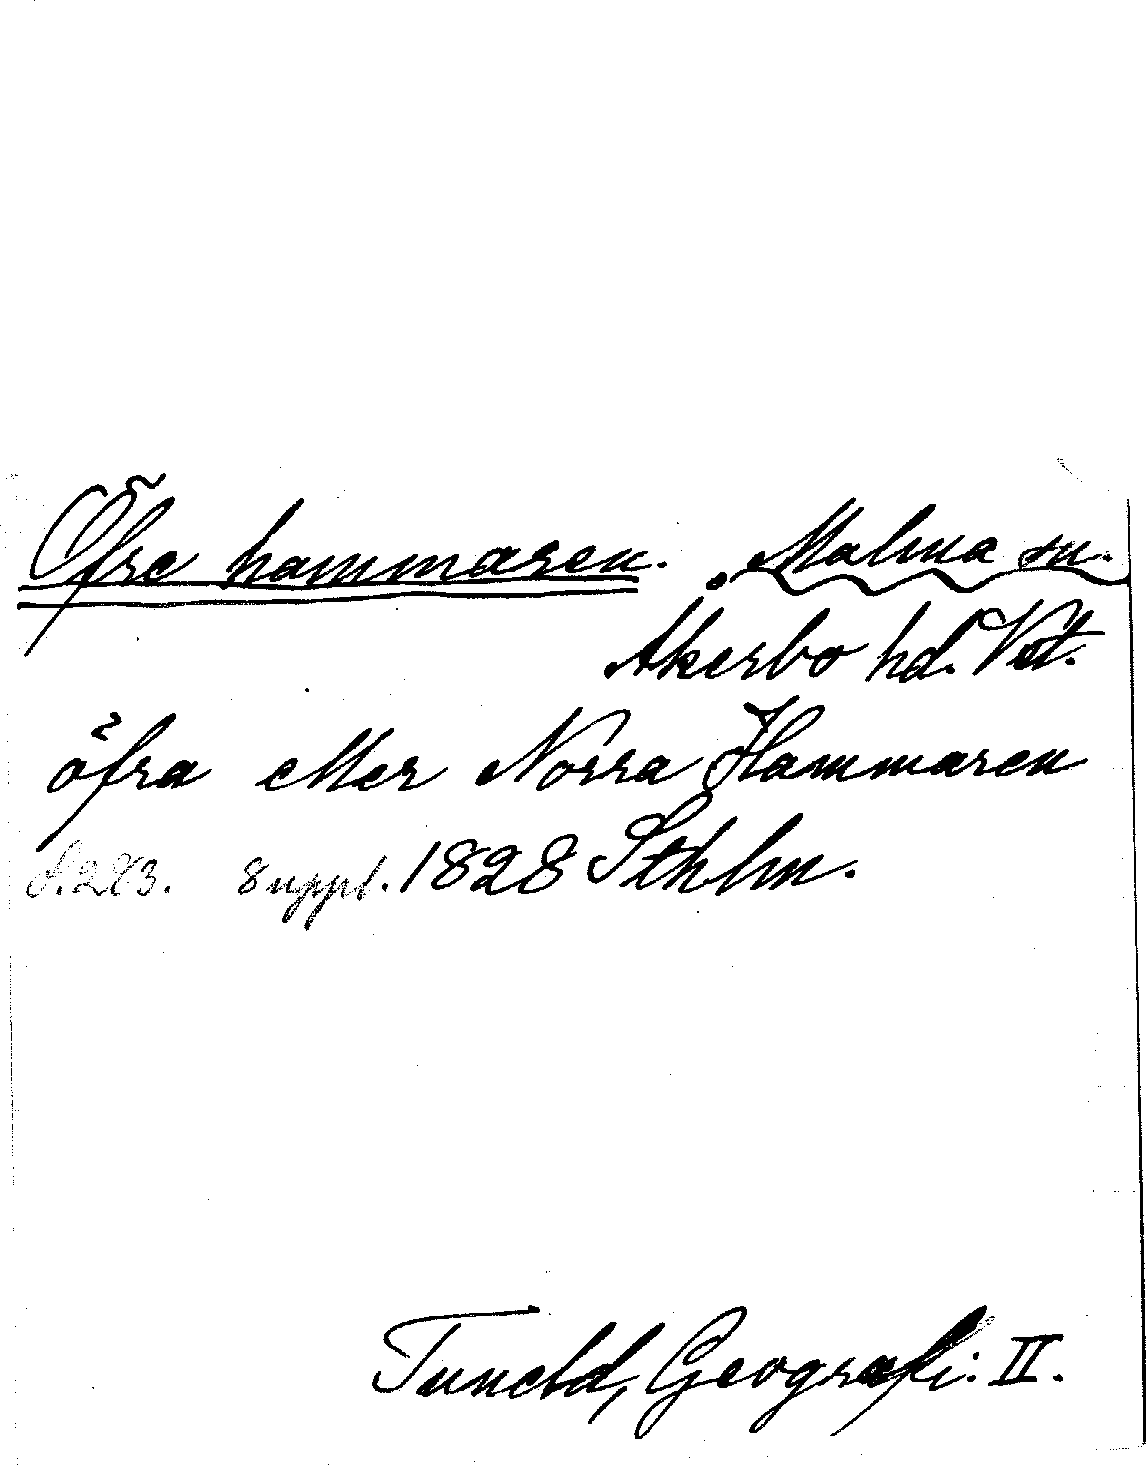 Öfre hammaren. Malma sn.
Åkerbo hd. Vstm.
öfra eller Norra Hammaren
S. 283. 8 uppl. 1828 Sthlm.
Tuneld, Geografi. II.